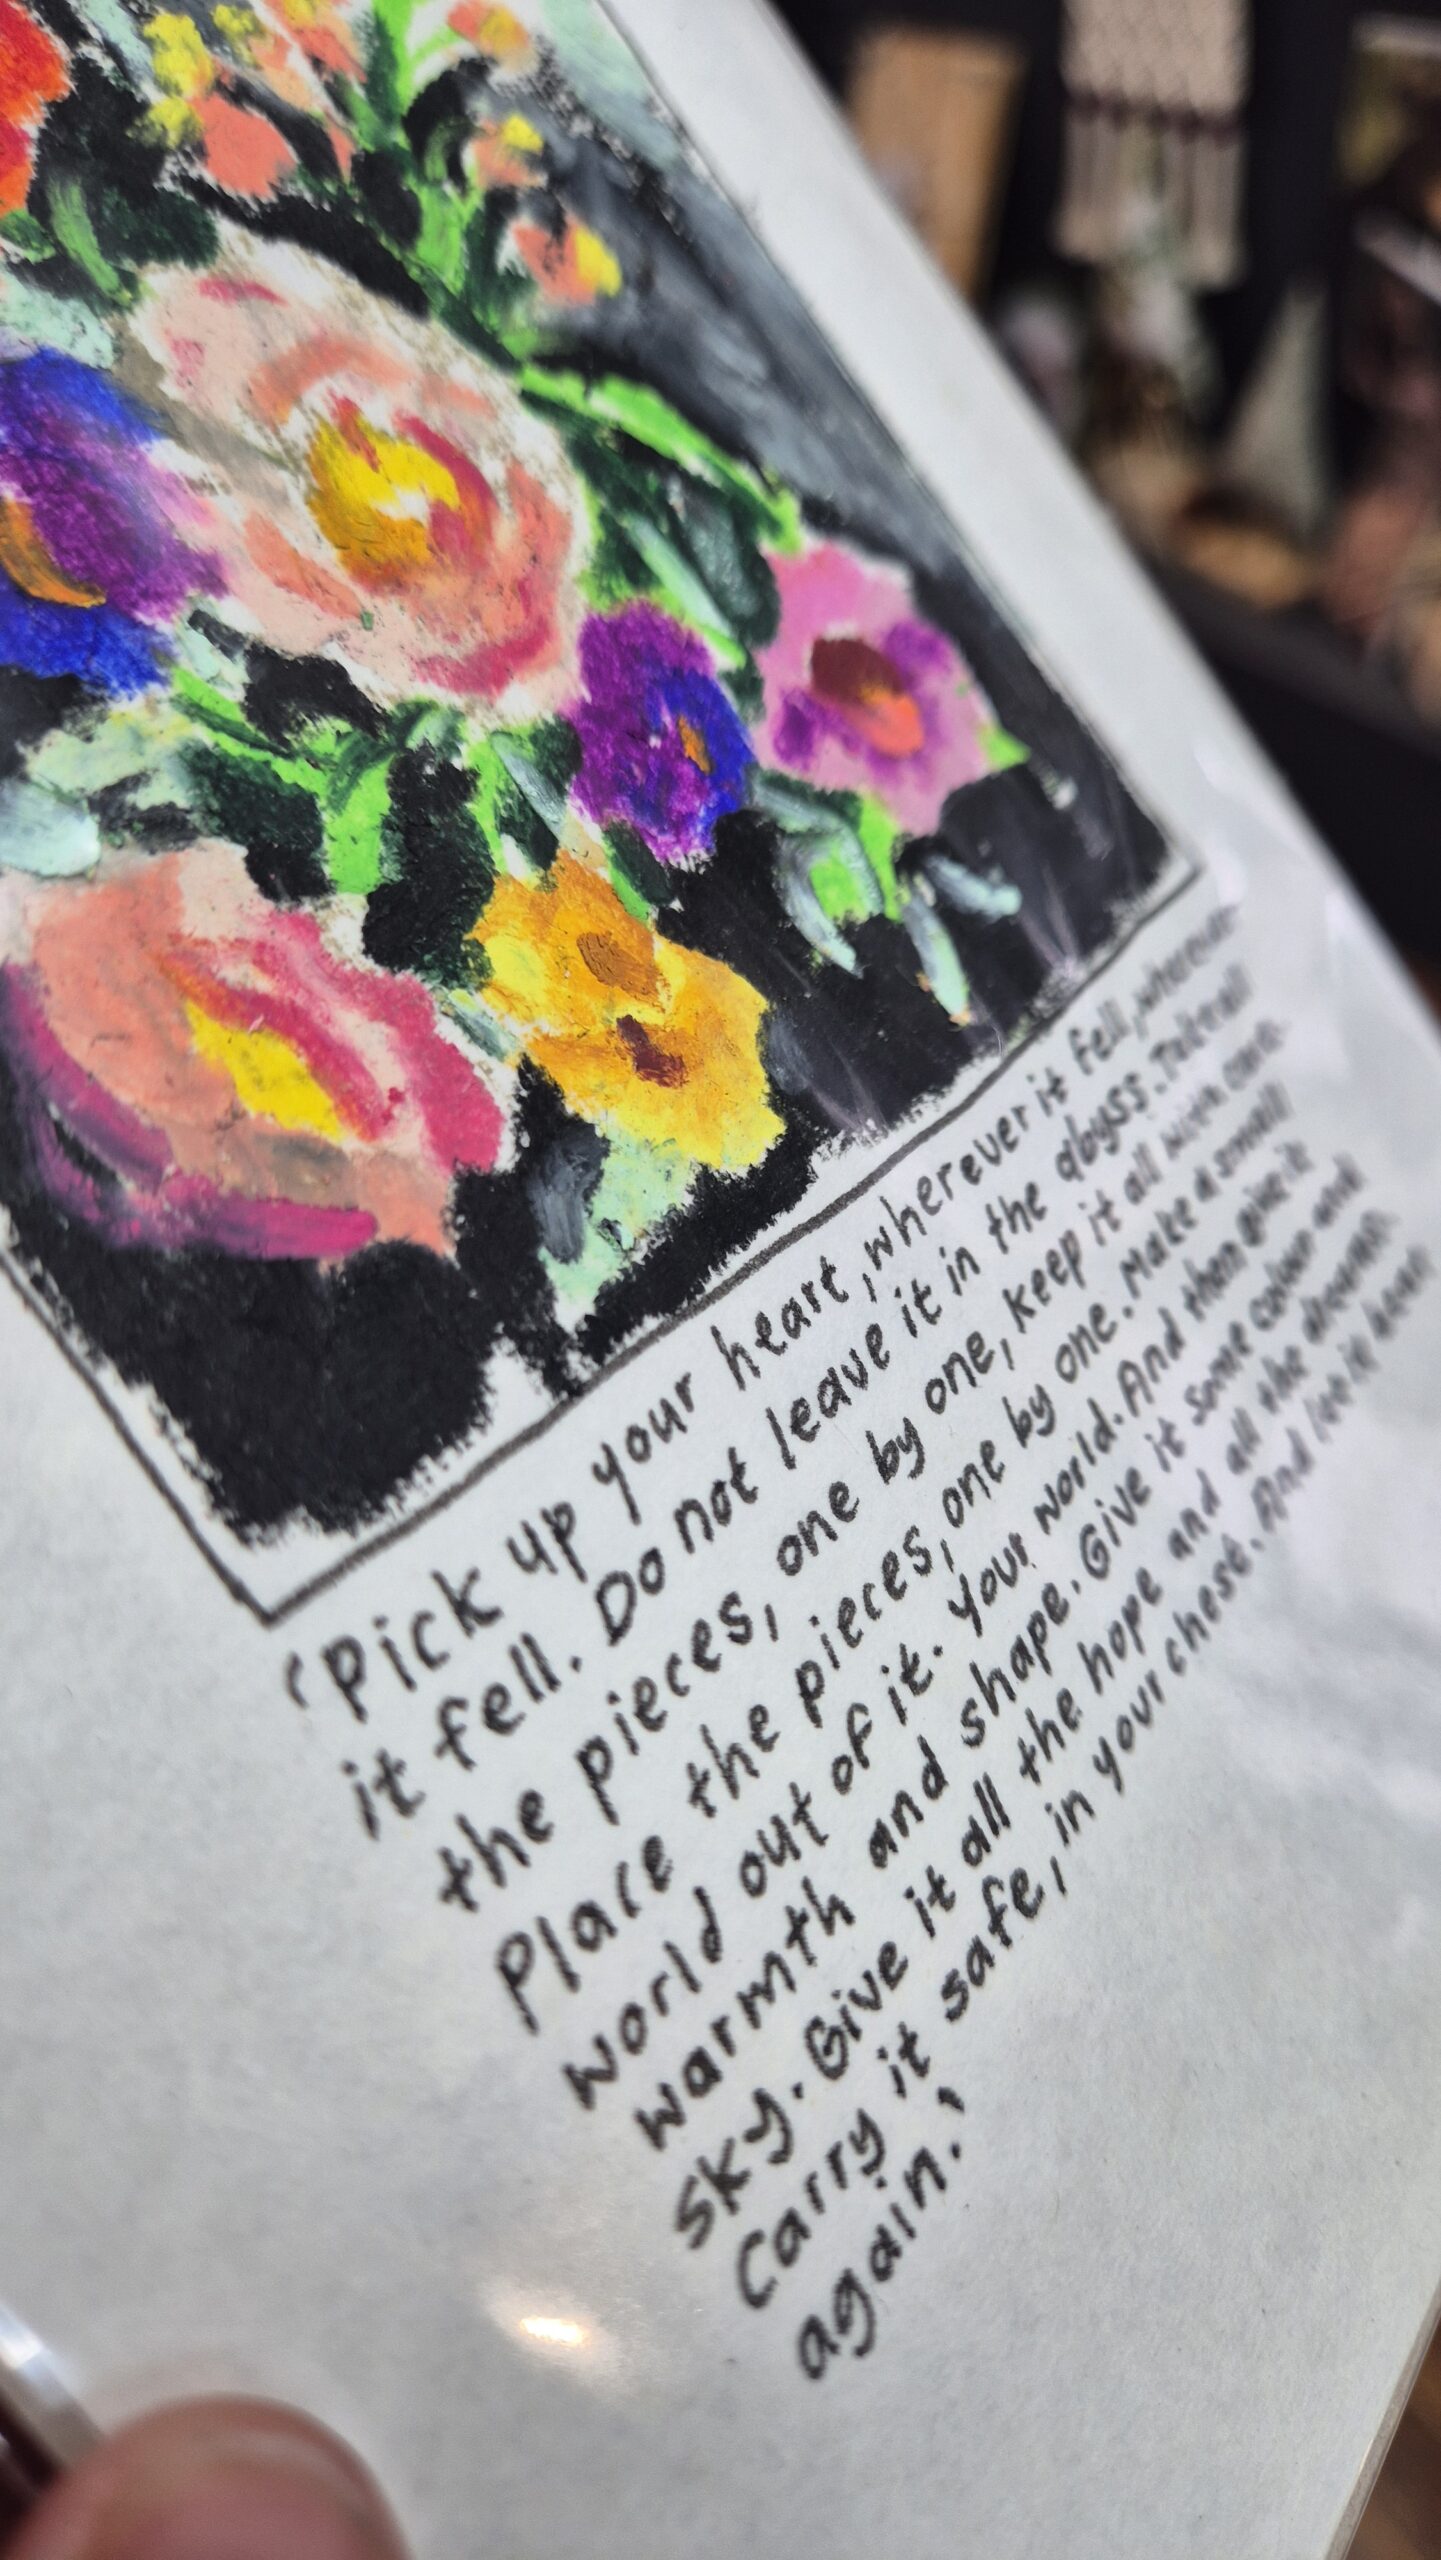 'Pick up your heart, wherever it fell, wherever
it fell. Do not leave it in the abyss. Take all
the pieces, one by one, keep it all with care.
Place the pieces, one by one. Make a small
world out of it. Your world. And then give it
warmth and shape. Give it some colour and
sky. Give it all the hope and all the dreams.
Carry it safe, in your chest. And let it beat
again.'